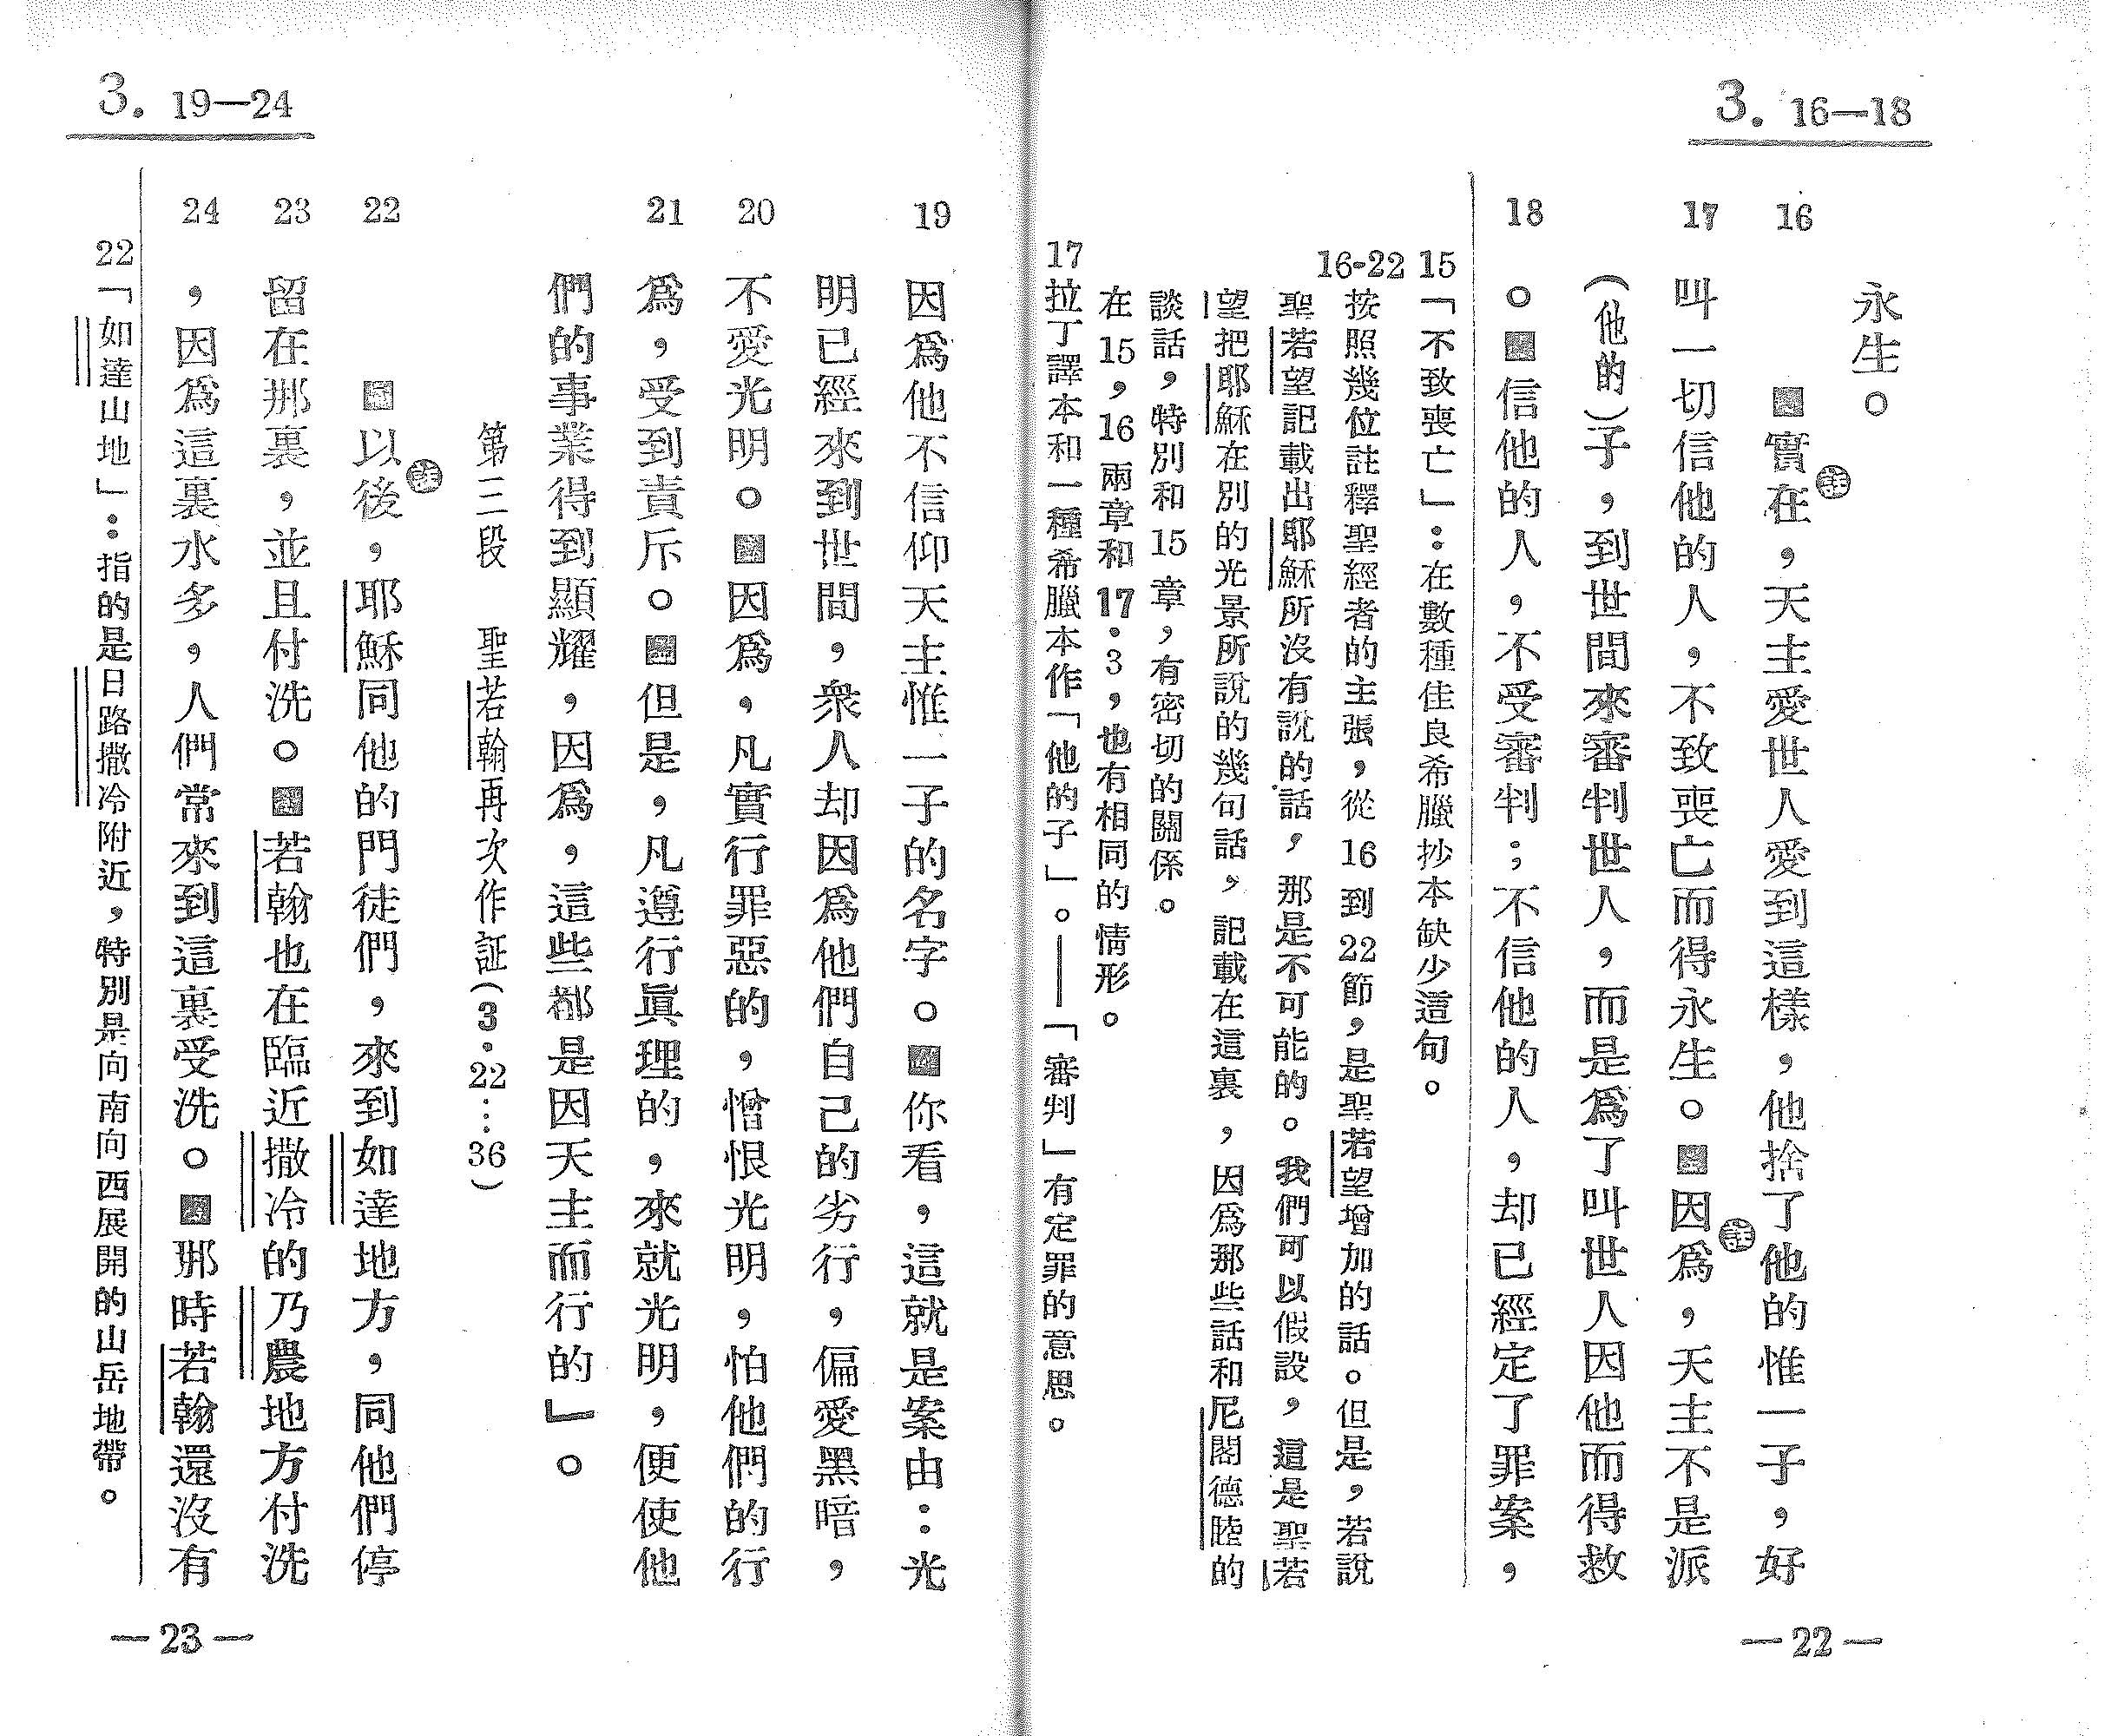 3. 16—18
永生。
16 實在，天主愛世人愛到這樣，他捨了他的惟一子，好
註
17 叫一切信他的人，不致喪亡而得永生。因爲，天主不是派
註
(他的)子，到世間來審判世人，而是爲了叫世人因他而得救
18 。信他的人，不受審判；不信他的人，却已經定了罪案，
15 「不致喪亡」：在數種佳良希臘抄本缺少這句。
16-22 按照幾位註釋聖經者的主張，從 16 到 22 節，是聖若望增加的話。但是，若說
聖若望記載出耶穌所沒有說的話，那是不可能的。我們可以假設，這是聖若
望把耶穌在別的光景所說的幾句話，記載在這裏，因爲那些話和尼閣德睦的
談話，特別和 15 章，有密切的關係。
在 15，16 兩章和 17·3，也有相同的情形。
17 拉丁譯本和一種希臘本作「他的子」。——「審判」有定罪的意思。
—22—
3. 19—24
19 因爲他不信仰天主惟一子的名字。你看，這就是案由：光
明已經來到世間，衆人却因爲他們自己的劣行，偏愛黑暗，
20 不愛光明。因爲，凡實行罪惡的，憎恨光明，怕他們的行
21 爲，受到責斥。但是，凡遵行眞理的，來就光明，便使他
們的事業得到顯耀，因爲，這些都是因天主而行的」。
第三段 聖若翰再次作証(3·22…36)
22 以後，耶穌同他的門徒們，來到如達地方，同他們停
註
23 留在那裏，並且付洗。若翰也在臨近撒冷的乃農地方付洗
24 ，因爲這裏水多，人們常來到這裏受洗。那時若翰還沒有
22 「如達山地」：指的是日路撒冷附近，特別是向南向西展開的山岳地帶。
—23—